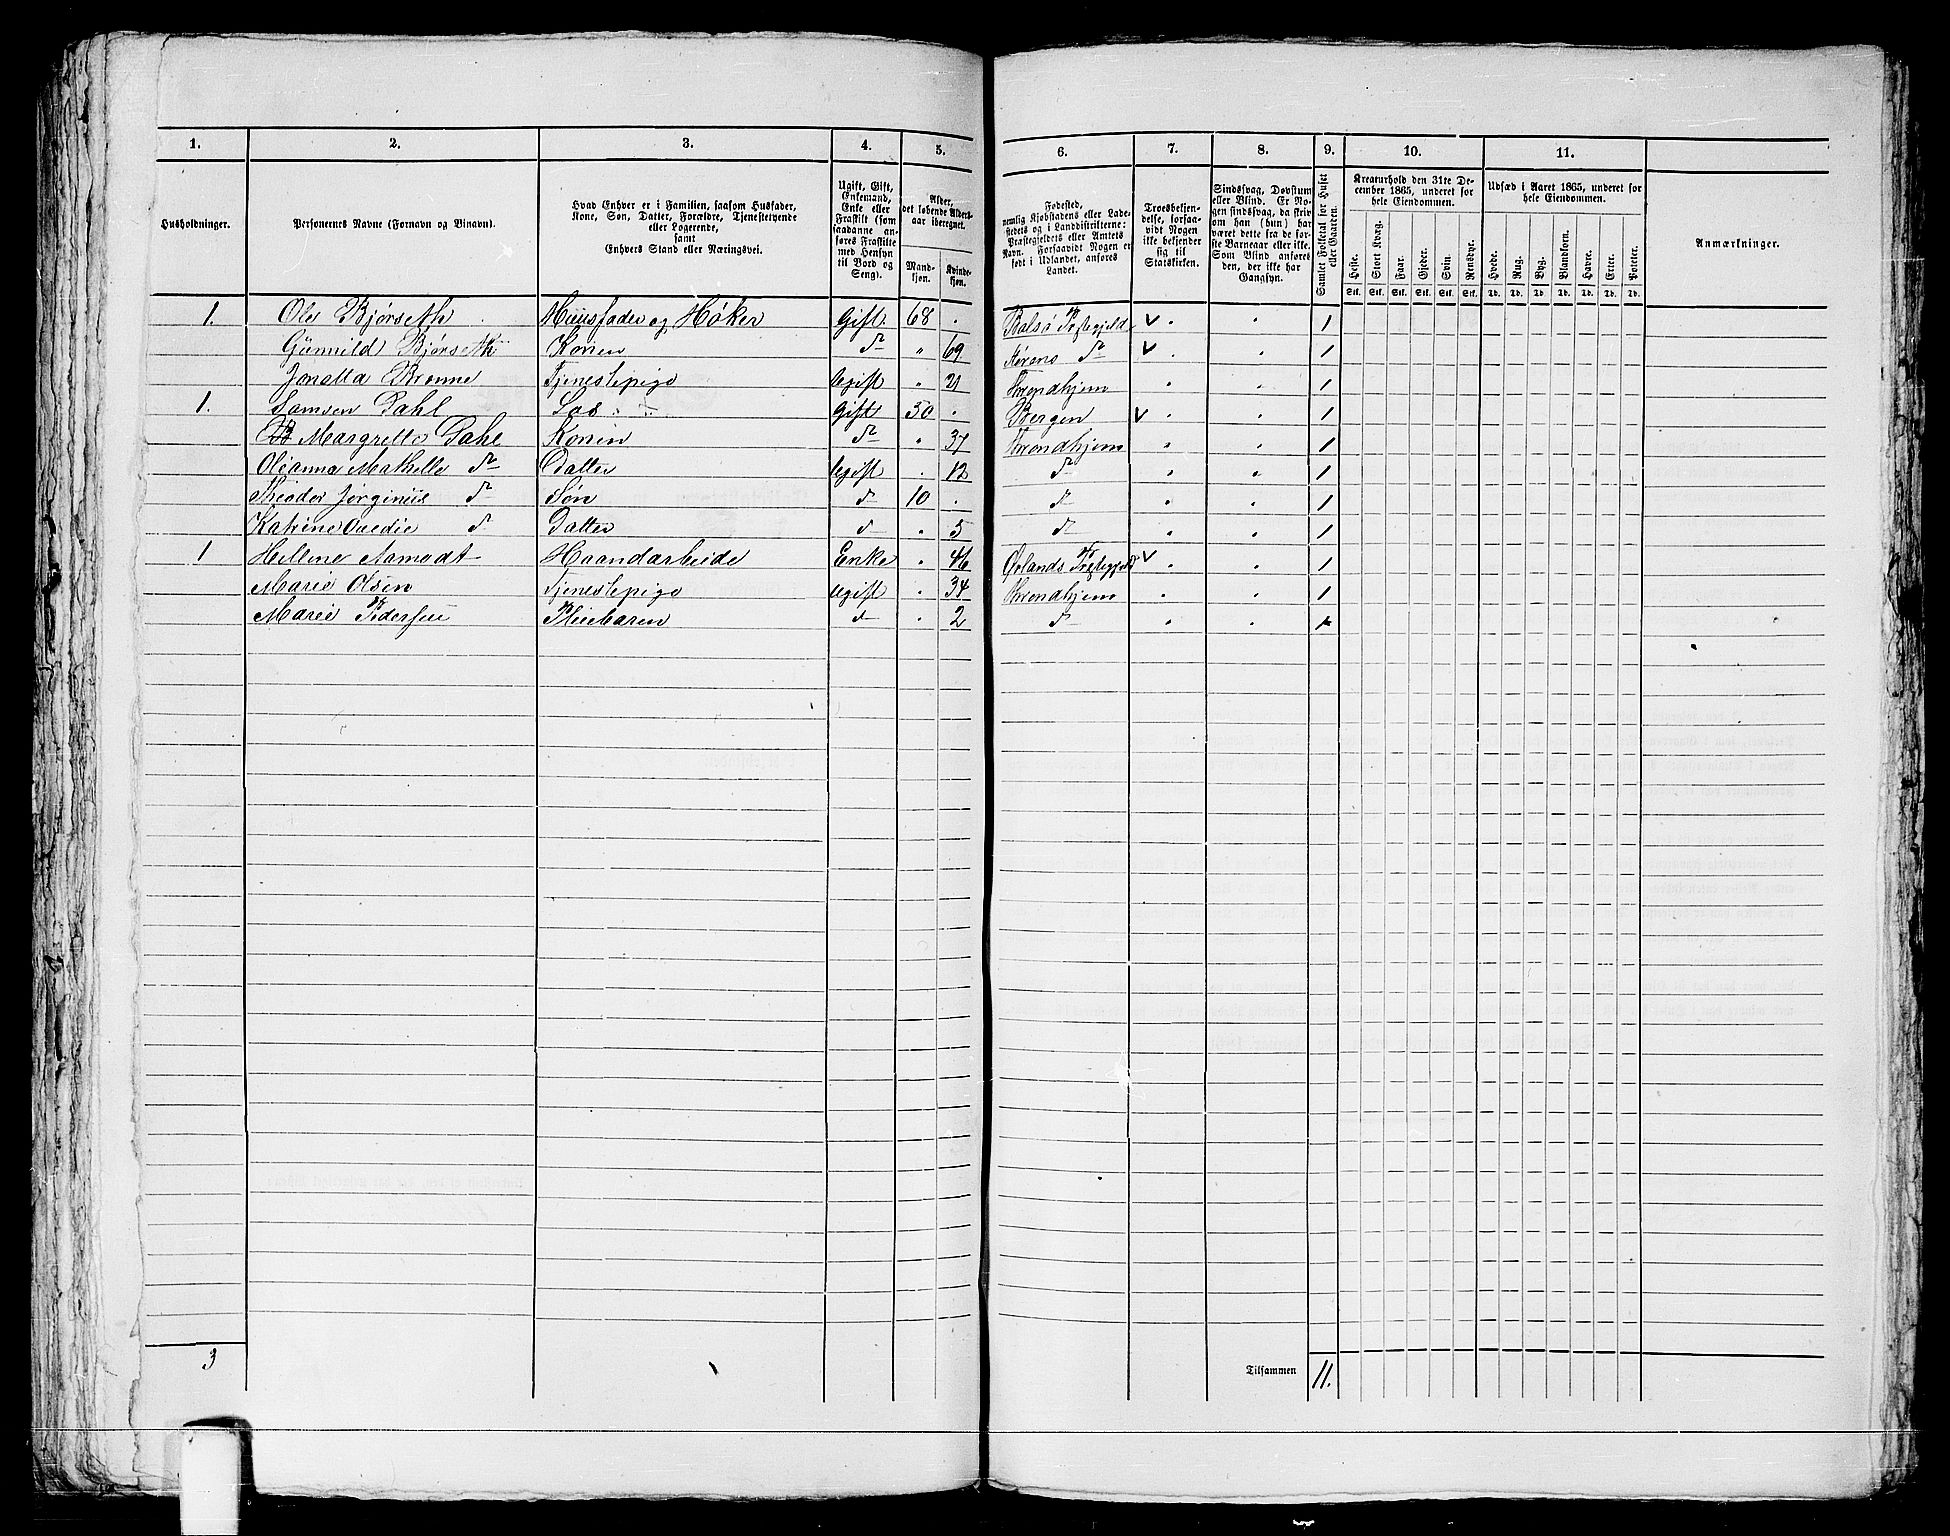 1. 2. 3. 4. 5. 6. 7. 8. 9. 10. 11.
Husholdninger.
Personernes Navne (Fornavn og Binavn).
Hvad Enhver er i Familien, saasom Husfader,
Kone, Søn, Datter, Forældre, Tjenestetyende
eller Logerende,
samt
Enhvers Stand eller Næringsvei.
Ugift, Gift,
Enkemand,
Enke eller
Fraskilt (som
saadanne an-
føres Fraskilte
med Hensyn
til Bord og
Seng).
Alder,
det løbende Alders-
aar iberegnet.
Mand-
kjøn.
Kvinde-
kjøn.
Fødested,
nemlig Kjøbstadens eller Lade-
stedets og i Landdistrikterne:
Præstegjeldets eller Amtets
Navn. Forsaavidt Nogen er
født i Udlandet, anføres
Landet.
Troesbekjen-
delse, forsaa-
vidt Nogen
ikke bekjender
sig til
Statskirken.
Sindssvag, Døvstum
eller Blind. Er No-
gen sindssvag, da skri-
ves om han (hun) har
været dette fra de før-
ste Barneaar eller ikke.
Som Blind anføres
den, der ikke har
Gangsyn.
Samlet Folketal for Huset
eller Gaarden.
Kreaturhold den 31te De-
cember 1865, underet for
hele Eiendommen.
Heste. Stort Kvæg. Faar. Gjeder. Svin. Rensdyr.
Stk. Stk. Stk. Stk. Stk. Stk.
Udsæd i Aaret 1865, underet for
hele Eiendommen.
Hvede. Rug. Byg. Blandkorn. Havre. Erter. Poteter.
Td. Td. Td. Td. Td. Td. Td.
Anmærkninger.
1. Ole Bjørseth Huusfader og Høker Gift. 68 . Præstegjeld 1
Gunnild Bjørseth Konen do " 69 Størens do 1
Brønne Tjenestepige Ugift " 21 Throndhjem 1
1. Samsen Dahl Gift 50 . Bergen 1
Margrette Dahl Konen do " 37 Throndhjem 1
Olianna do Datter Ugift . 12 do 1
Theodor Jørginius do Søn do 10 . do 1
Katrine do Datter do . 5 do 1
1 Hellene Aamodt Haandarbeide Enke . 46 Ørlands Præstegjeld 1
Marie Olsen Tjenestepige Ugift . 34 Throndhjem 1
Marie Pedersen Pleiebaren do . 2 do 1
3
Tilsammen 11.